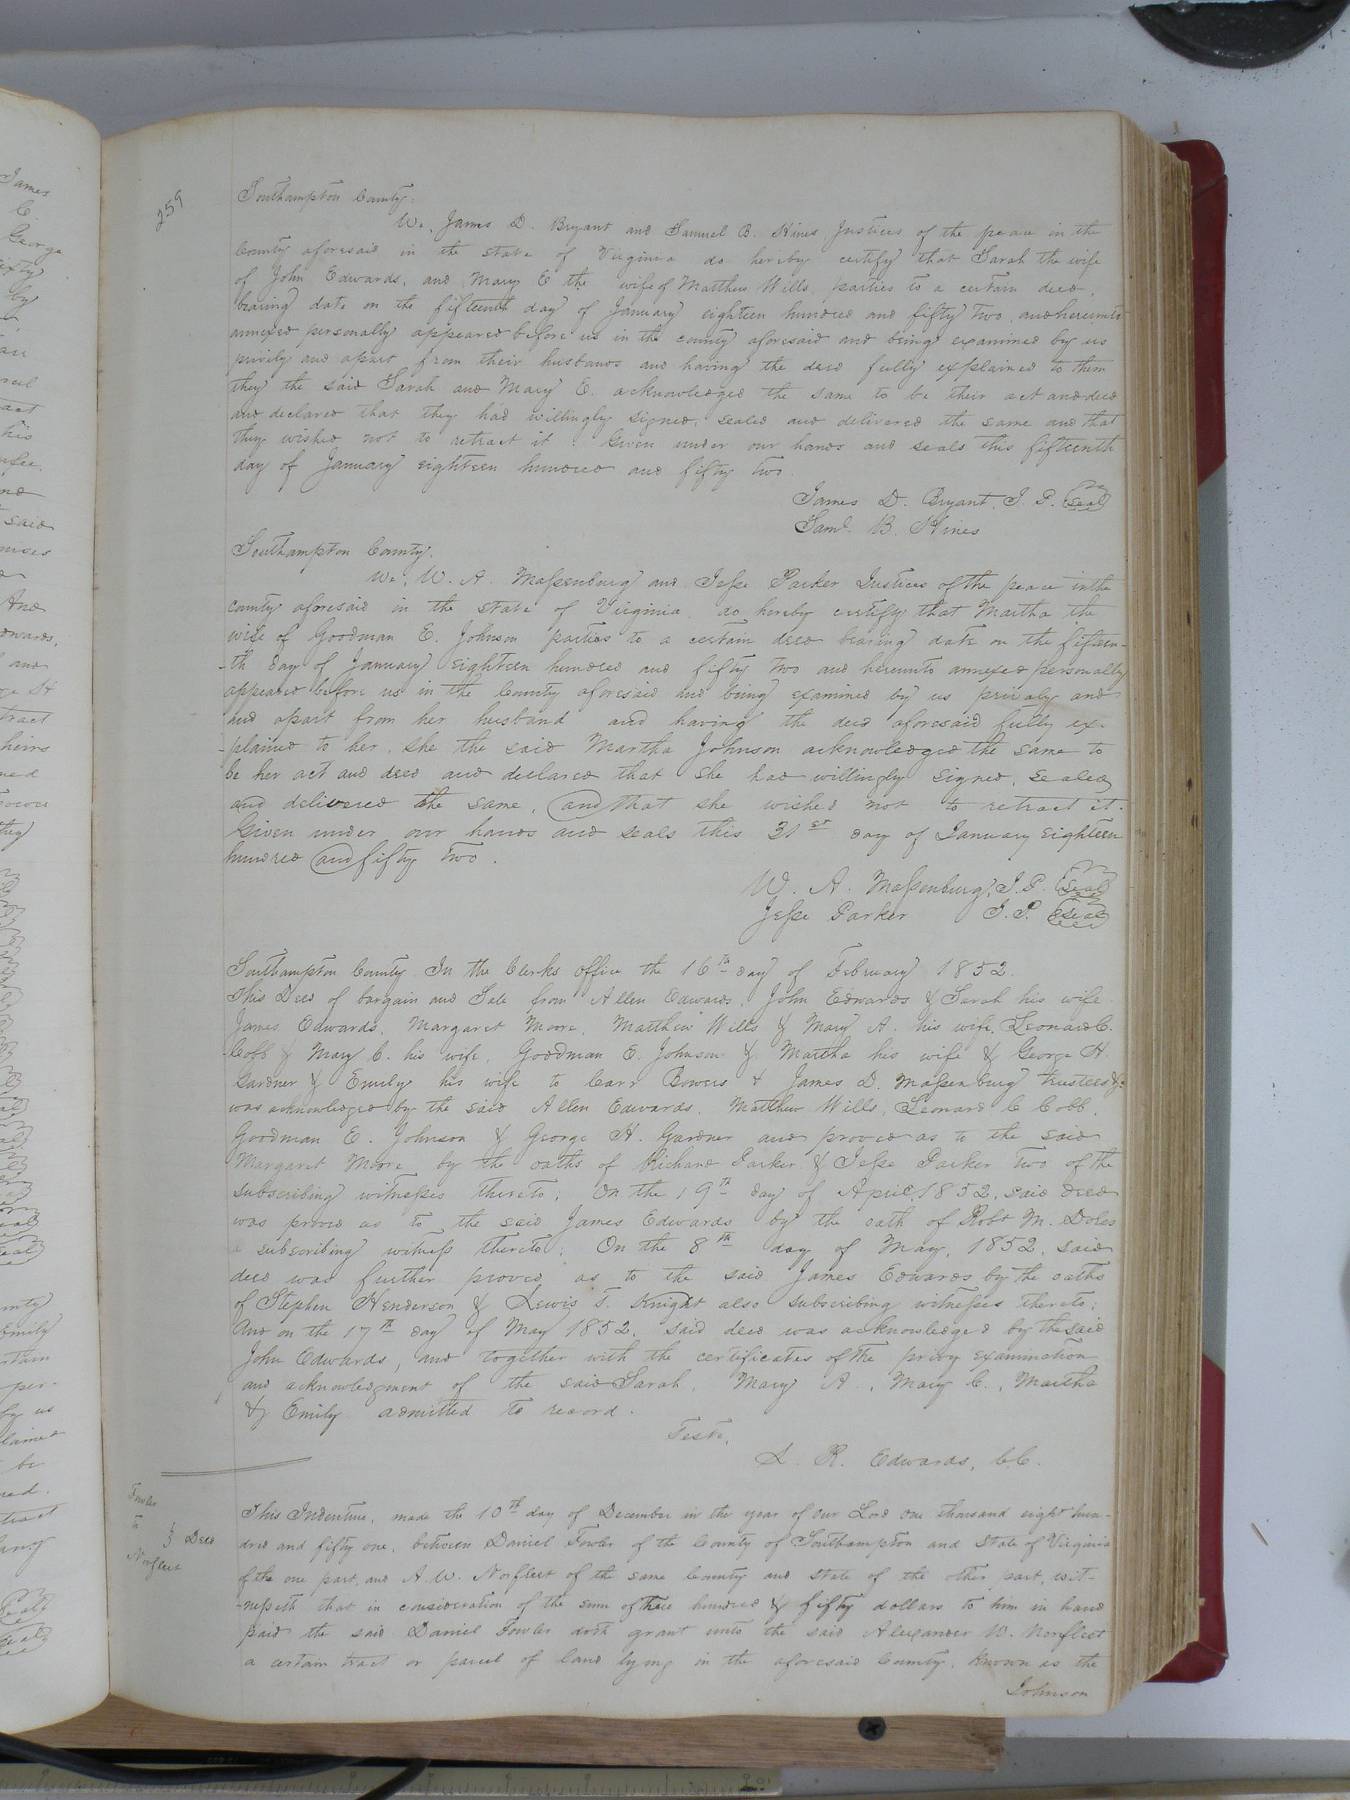 259
Southampton County.
We, James D. Bryant and Samuel B. Hines Justices of the peace in the
County aforesaid in the state of Virginia do hereby certify that Sarah the wife
of John Edwards, and Mary E the wife of Matthew Wills parties to a certain deed,
bearing date on the fifteenth day of January eighteen hundred and fifty two and hereunto
annexed personally appeared before us in the county aforesaid and being examined by us
privily and apart from their husbands and having the deed fully explained to them
they the said Sarah and Mary E. acknowledged the same to be their act and deed
and declared that they had willingly signed, sealed and delivered the same and that
they wished not to retract it. Given under our hands and seals this fifteenth
day of January eighteen hundred and fifty two.
James D. Bryant, J. P. (Seal)
Saml. B. Hines
Southampton County.
We, W. A. Massenburg and Jesse Parker Justices of the peace in the
county aforesaid in the state of Virginia do hereby certify that Martha the
wife of Goodman E. Johnson parties to a certain deed bearing date on the fifteen-
-th day of January eighteen hundred and fifty two and hereunto annexed personally
appeared before us in the County aforesaid and being examined by us privaly and
and apart from her husband and having the deed aforesaid fully ex-
-plained to her. she the said Martha Johnson acknowledged the same to
be her act and deed and declared that she had willingly signed, sealed
and delivered the same, and that she wished not to retract it.
Given under our hands and seals this 31st day of January eighteen
hundred and fifty two.
W. A. Massenburg, J. P. (Seal)
Jesse Parker J. P. (Seal)
Southampton County In the Clerks office the 16th day of February 1852.
This Deed of bargain and Sale from Allen Edwards, John Edwards & Sarah his wife
James Edwards, Margaret Moore, Matthew Wills & Mary A. his wife, Leonard C.
Cobb & Mary C. his wife, Goodman E. Johnson & Martha his wife & George H.
Gardner & Emily his wife to Carr Bowers & James D. Massenburg trustees &c
was acknowledged by the said Allen Edwards, Matthew Wills, Leonard C Cobb,
Goodman E. Johnson & George H. Gardner and proved as to the said
Margaret Moore by the oaths of Richard Parker & Jesse Parker two of the
subscribing witnesses thereto; On the 19th day of April, 1852, said deed
was proved as to the said James Edwards by the oath of Robt M. Doles
a subscribing witness thereto; On the 8th day of May, 1852, said
deed was further proved as to the said James Edwards by the oaths
of Stephen Henderson & Lewis T. Knight also subscribing witnesses thereto;
And on the 17th day of May 1852, said deed was acknowledged by the said
John Edwards, and together with the certificates of the privy examination
and acknowledgment of the said Sarah, Mary A., Mary C., Martha
& Emily admitted to record.
Teste,
L. R. Edwards, C.C.
Fowler
to } Deed
Norfleet
This Indenture, made the 10th day of December in the year of our Lord one thousand eight hun-
dred and fifty one, between Daniel Fowler of the County of Southampton and State of Virginia
of the one part, and A. W. Norfleet of the same County and State of the other part, wit-
-nesseth that in consideration of the sum of three hundred & fifty dollars to him in hand
paid the said Daniel Fowler doth grant unto the said Alexander W. Norfleet
a certain tract or parcel of land lying in the aforesaid County, known as the
Johnson